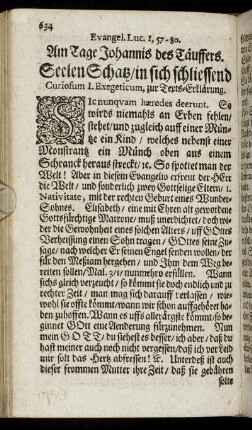 634
Evangel. Luc. 1, 57-80.
Am Tage Johannis des Täuffers.
Seelen Schatz / in sich schliessend
Curiosum I. Exegeticum, zur Texts-Erklärung.
Sic nunqvam hæredes deerunt. So
wirds niemahls an Erben fehlen/
stehet / und zugleich auff einer Mün-
tze ein Kind / welches nebenst einer
Monstrantz ein Münch oben aus einem
Schranck heraus streckt / 2c. So spottet man der
Welt! Aber in diesem Evangelio erfreut der HErr
die Welt / und sonderlich zwey Gottselige Eltern / 1.
Nativitate, mit der rechten Geburt eines Wunder
Sohnes. Elisabeth / eine mit Ehren alt gewordene
Gottsfürchtige Matron / muß unerdichtet / doch wi-
der die Gewonheit eines solchen Alters / uff GOttes
Verheissung einen Sohn tragen / GOttes seine Zu-
sage / nach welcher Er seinen Engel senden wollen / der
für den Meßiam hergehen / und Ihm den Weg be-
reiten sollen / Mal. 3 / 1 / nunmehro erfüllen. Wann
sichs gleich verzeucht / so kömmt sie doch endlich und zu
rechter Zeit / man mag sich darauff verlassen / wie-
wohl sie offte kömmt / wann wir schon auffgehöret ha-
ben zu hoffen. Wann es uffs allerärgste kömmt / so be-
ginnet GOtt eine Aenderung fürzunehmen. Nun
mein GOTT / du siehest es besser / ich aber / daß du
hast meiner auch noch nicht vergessen / daß ich vor Leid
mir solt das Hertz abfressen! &c. Unterdeß ist auch
dieser frommen Mutter ihre Zeit / daß sie gebähren
solte